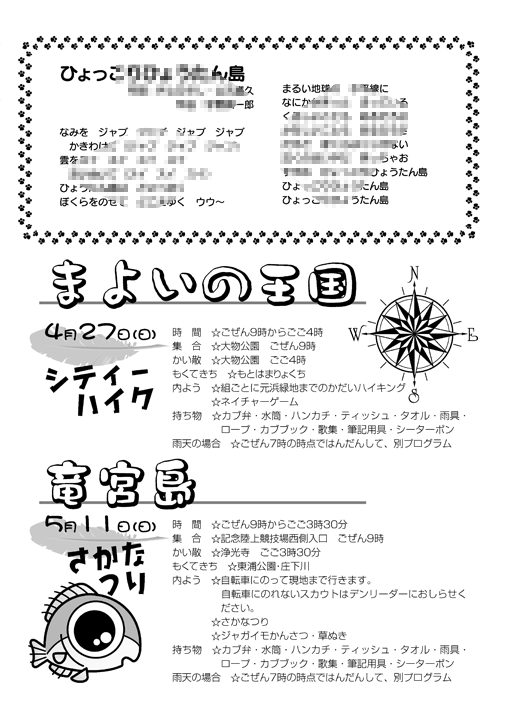 ひょっこりひょうたん島
なみを　ジャブ　ジャブ　ジャブ
かきわけ
雲を
ひょう
ぼくらをのせて　ゆく　ウウ～
まるい地球　線に
なにか　いる
く
ない
ちゃお
ひょうたん島
ひょ　たん島
ひょっこ　うたん島
まよいの王国
4月27日(日)
シティー
ハイク
N
W
E
S
時　間　☆ごぜん9時からごご4時
集　合　☆大物公園　ごぜん9時
かい散　☆大物公園　ごご4時
もくてきち　☆もとはまりょくち
内よう　☆組ごとに元浜緑地までのかだいハイキング
☆ネイチャーゲーム
持ち物　☆カブ弁・水筒・ハンカチ・ティッシュ・タオル・雨具・
ロープ・カブブック・歌集・筆記用具・シーターポン
雨天の場合　☆ごぜん7時の時点ではんだんして、別プログラム
竜宮島
5月11日(日)
さかな
つり
時　間　☆ごぜん9時からごご3時30分
集　合　☆記念陸上競技場西側入口　ごぜん9時
かい散　☆浄光寺　ごご3時30分
もくてきち　☆東浦公園・庄下川
内よう　☆自転車にのって現地まで行きます。
自転車にのれないスカウトはデンリーダーにおしらせく
ださい。
☆さかなつり
☆ジャガイモかんさつ・草ぬき
持ち物　☆カブ弁・水筒・ハンカチ・ティッシュ・タオル・雨具・
ロープ・カブブック・歌集・筆記用具・シーターポン
雨天の場合　☆ごぜん7時の時点ではんだんして、別プログラム